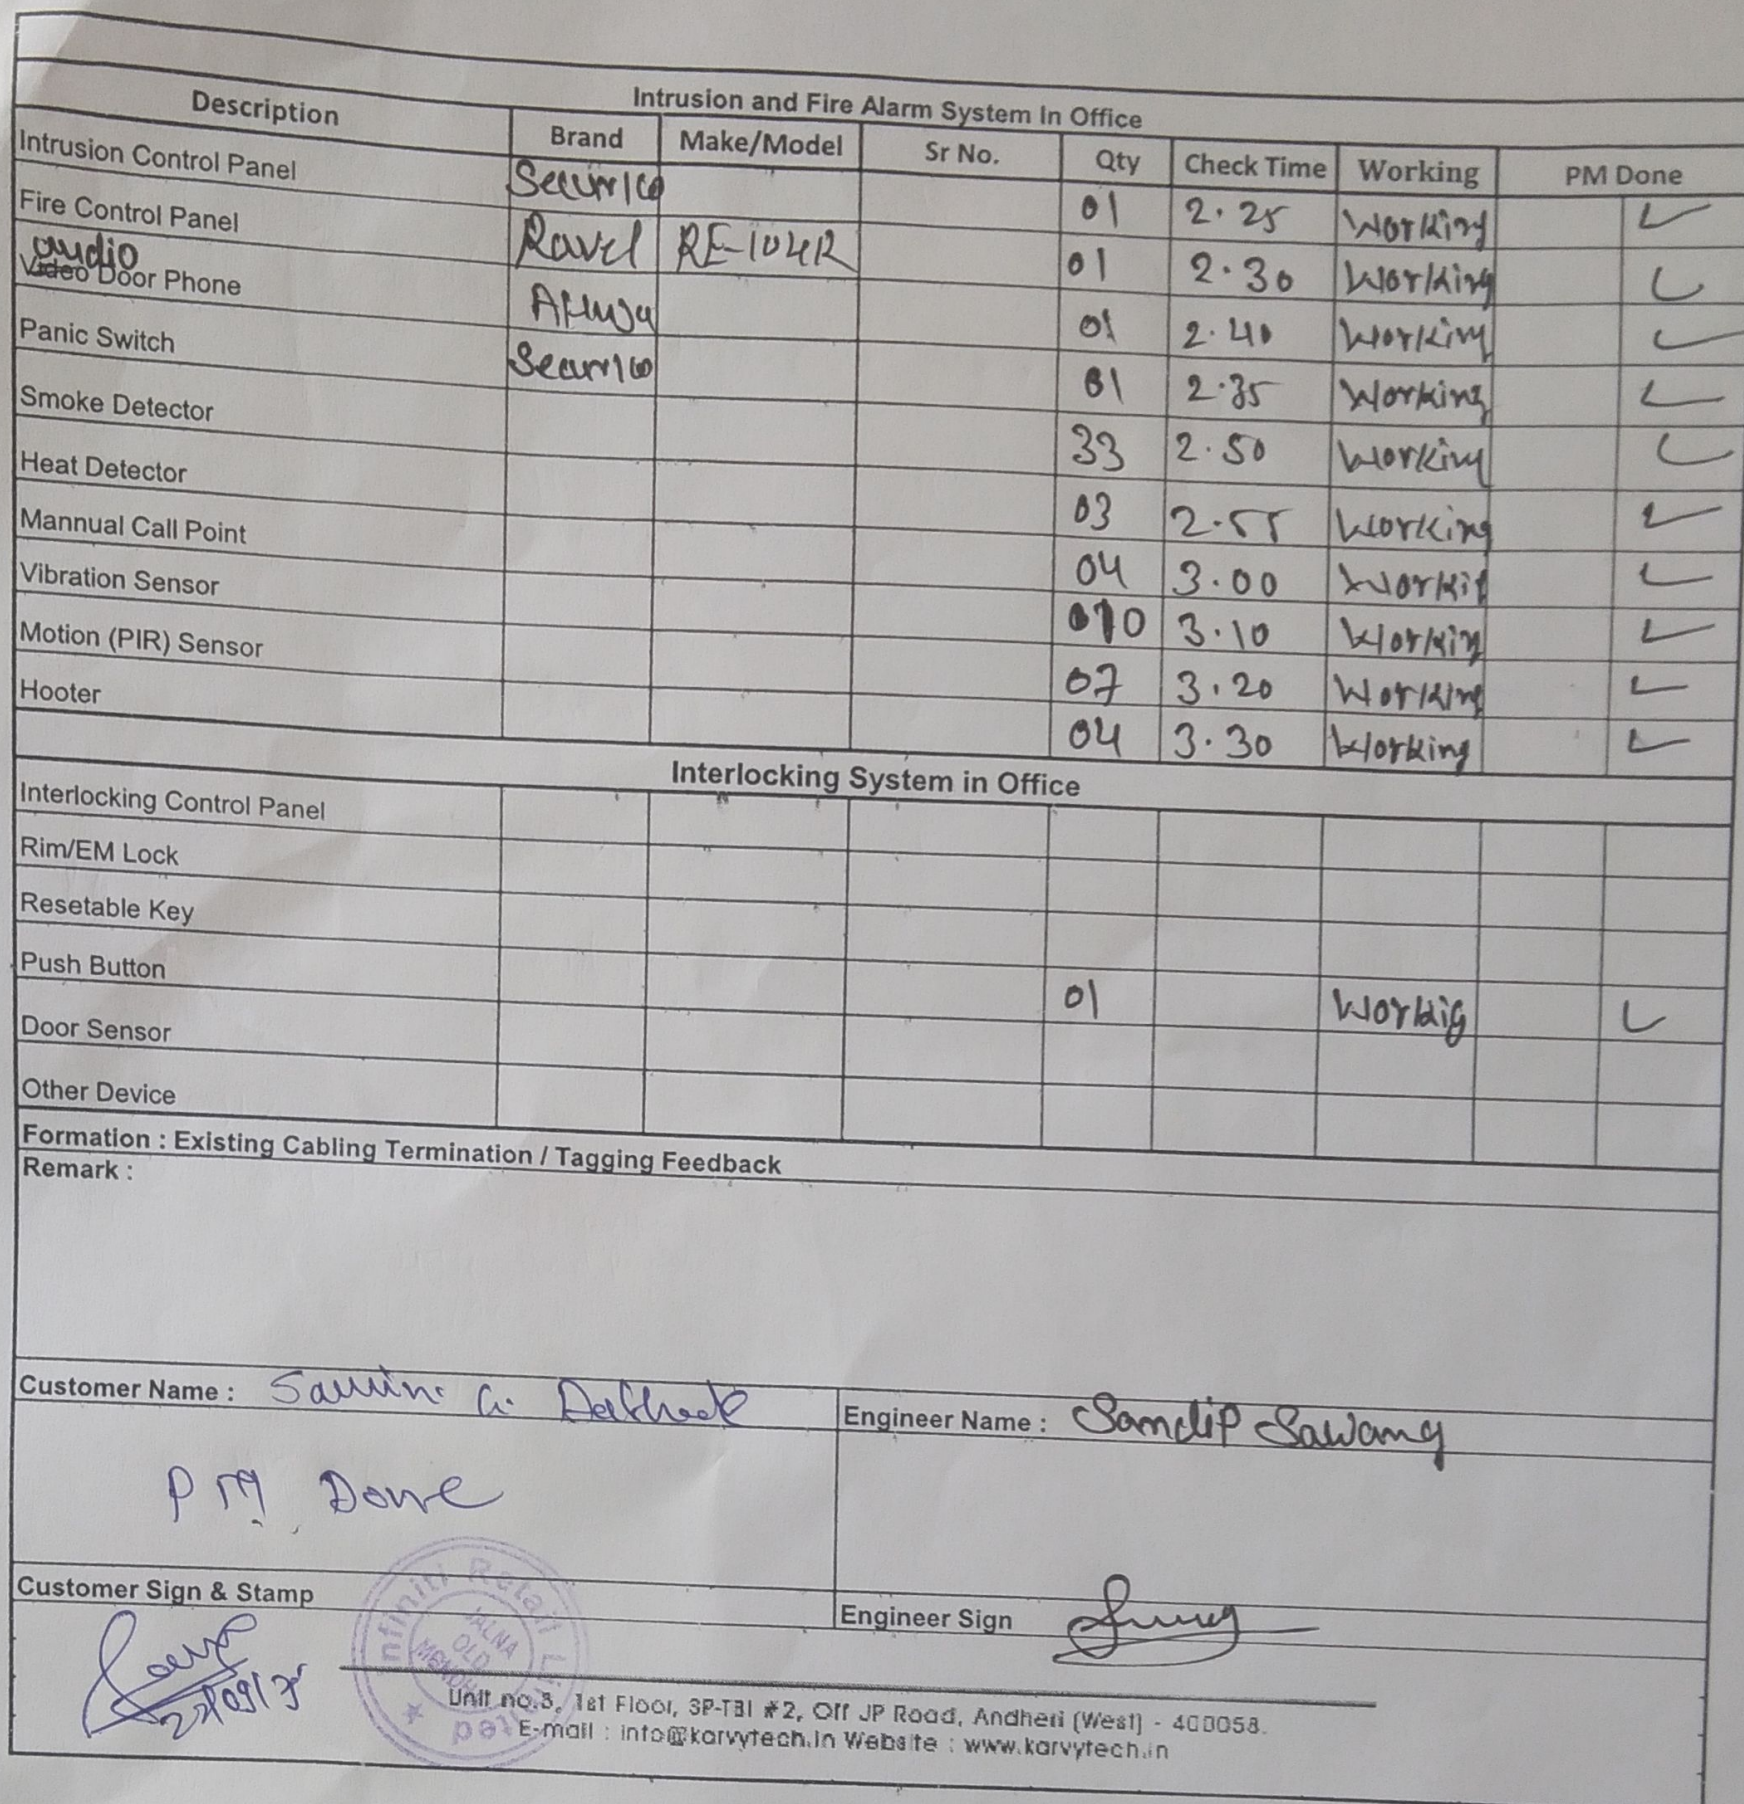 Intrusion and Fire Alarm System In Office
Description Brand Make/Model Sr No. Qty Check Time Working PM Done
Intrusion Control Panel Securico 01 2.25 Working ✓
Fire Control Panel Ravel RE-104R 01 2.30 Working ✓
audio
Video Door Phone Ahuja 01 2.40 Working ✓
Panic Switch Securico 01 2.35 Working ✓
Smoke Detector 33 2.50 Working ✓
Heat Detector 03 2.55 Working ✓
Mannual Call Point 04 3.00 Workig ✓
Vibration Sensor 010 3.10 Workig ✓
Motion (PIR) Sensor 07 3.20 Working ✓
Hooter 04 3.30 Working ✓
Interlocking System in Office
Interlocking Control Panel
Rim/EM Lock
Resetable Key
Push Button 01 Workig ✓
Door Sensor
Other Device
Formation : Existing Cabling Termination / Tagging Feedback
Remark :
Customer Name : G. Engineer Name : Sandip Sawang
PM Done
Customer Sign & Stamp Engineer Sign
Infiniti Retail Limited
JALNA
OLD
Unit no.3, 1st Floor, 3P-TBI #2, Off JP Road, Andheri (West) - 400058.
E-mail : info@karvytech.in Website : www.karvytech.in